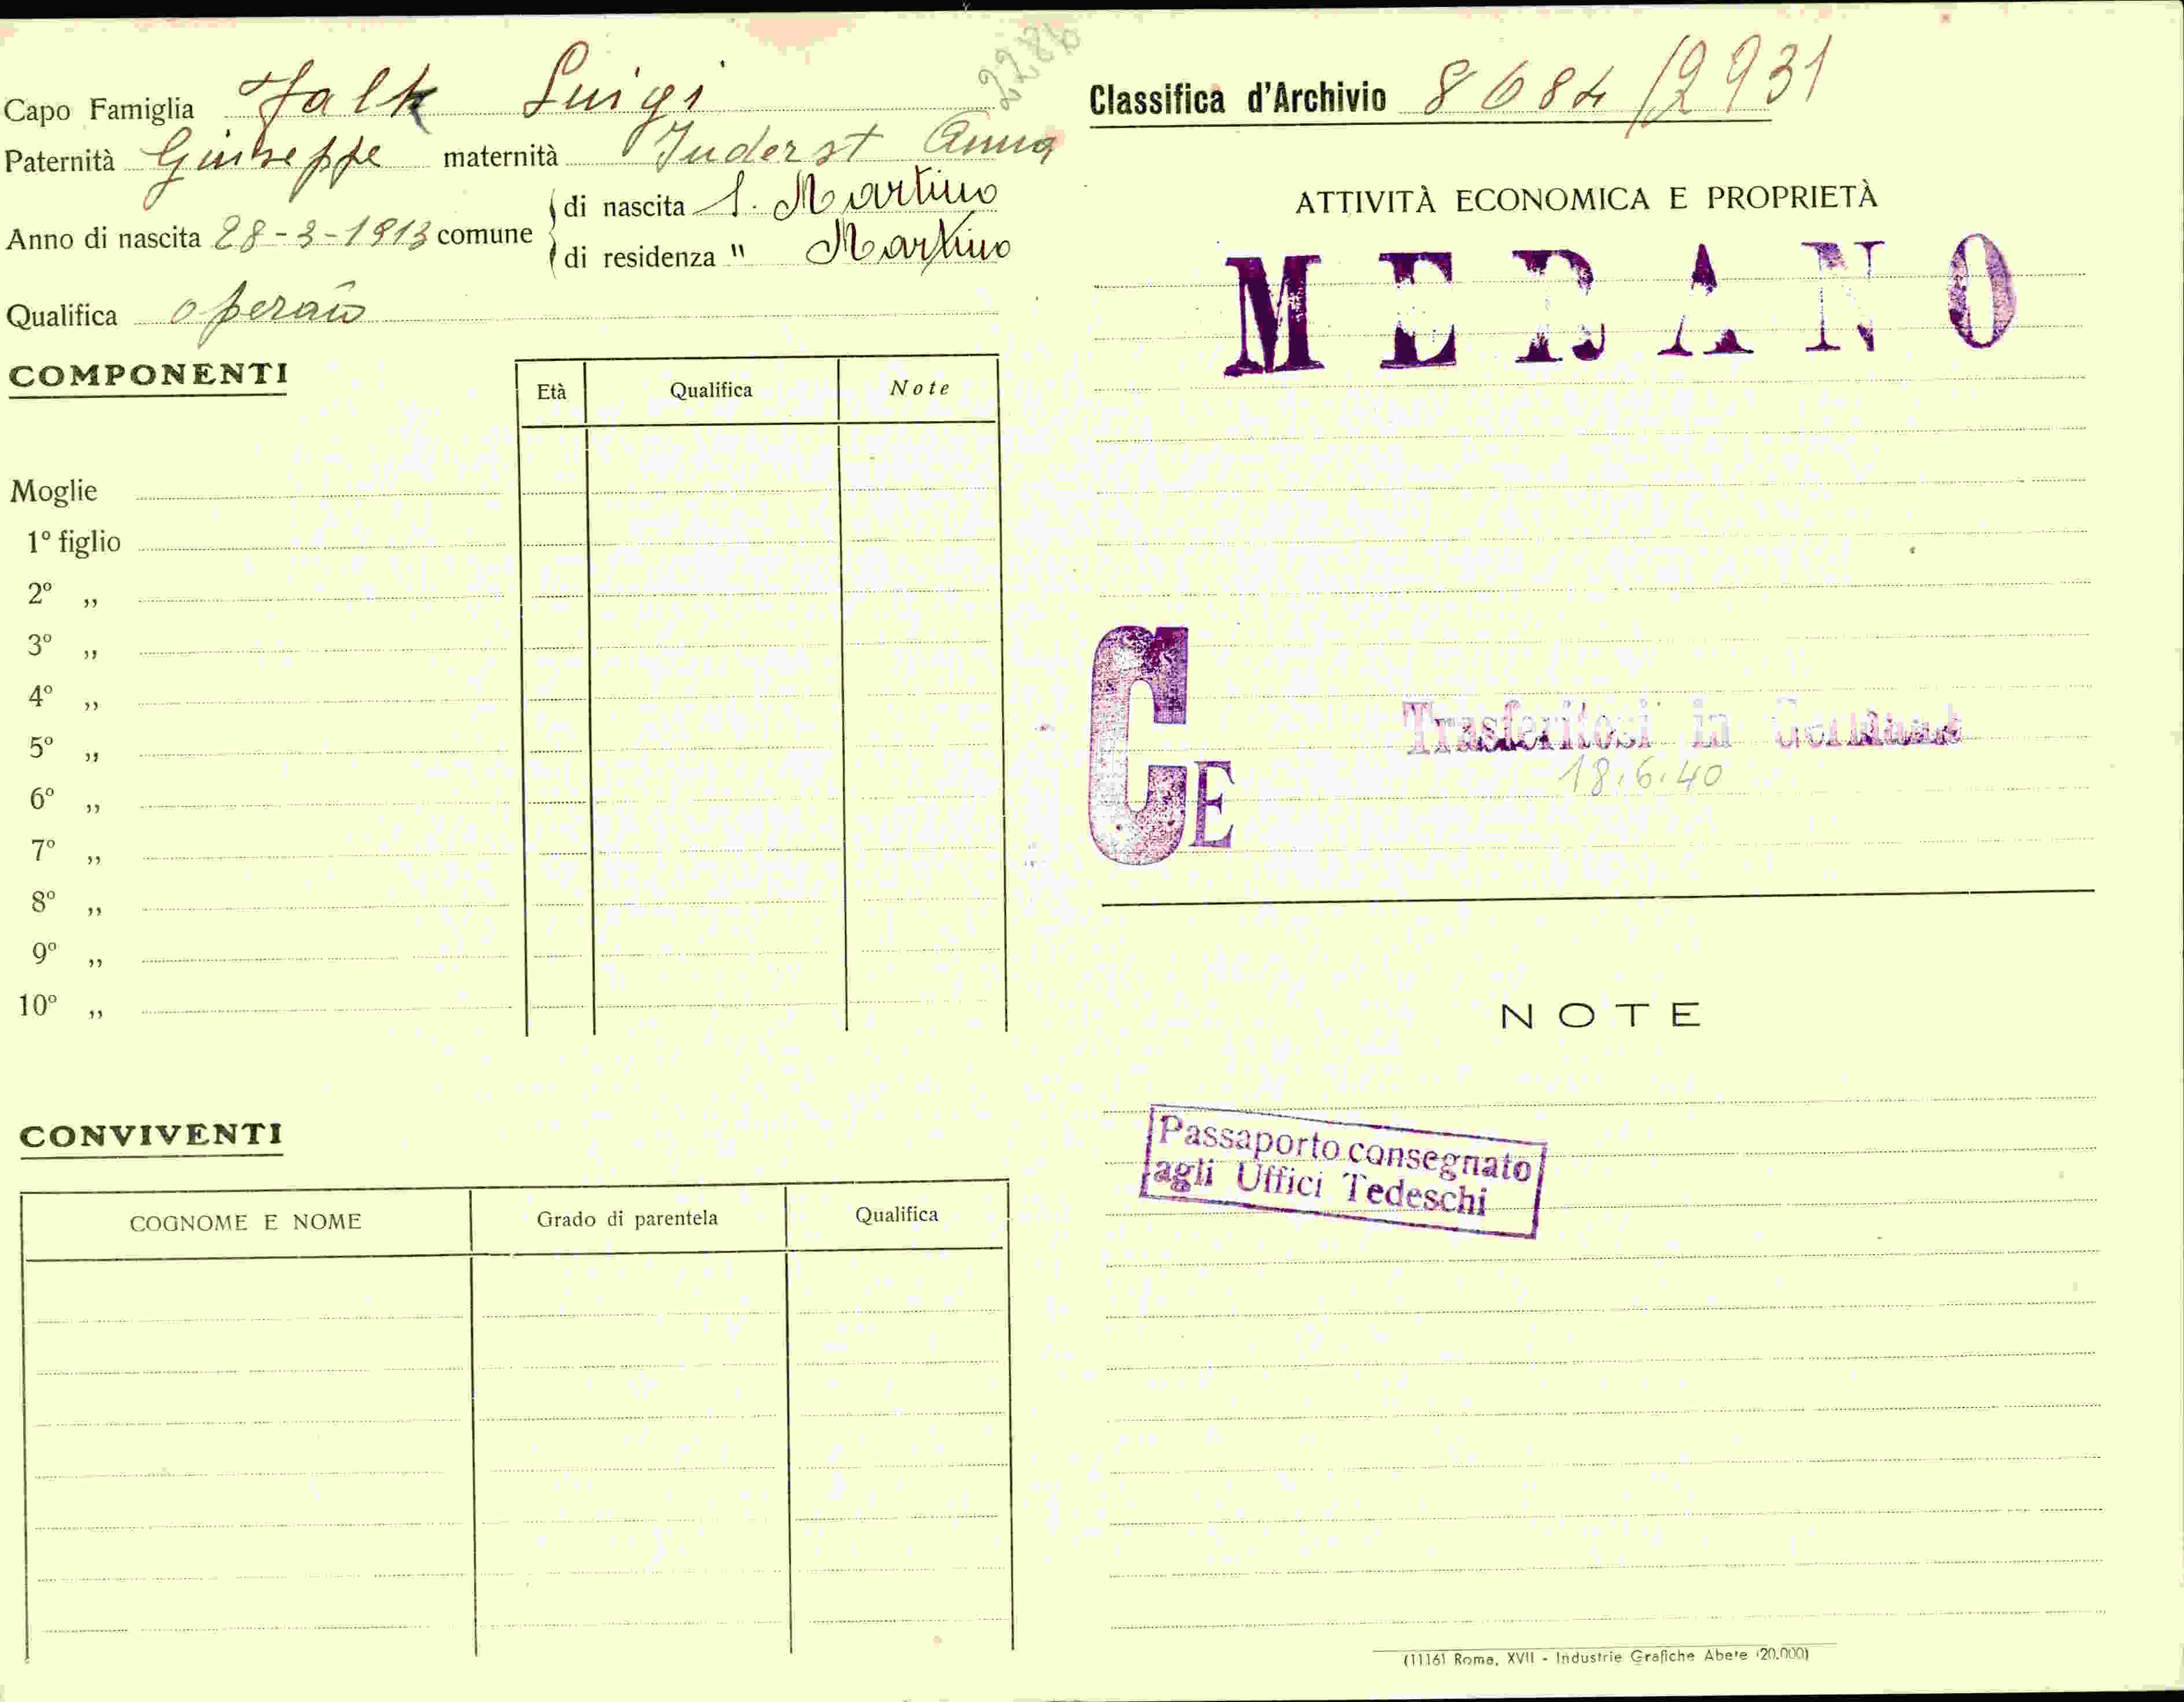 2286
Capo Famiglia Falk Luigi
Paternità Giuseppe maternità Inderst Anna
Anno di nascita 28-3-1913 comune
di nascita S. Martino
di residenza " Martino
Qualifica operaio
COMPONENTI
Età Qualifica Note
Moglie
1º figlio
2º „
3º „
4º „
5º „
6º „
7º „
8º „
9º „
10º „
CONVIVENTI
COGNOME E NOME Grado di parentela Qualifica
Classifica d'Archivio 8684/2931
ATTIVITÀ ECONOMICA E PROPRIETÀ
MERANO
CE
Trasferitosi in Germania
18.6.40
NOTE
Passaporto consegnato
agli Uffici Tedeschi
(1116) Roma, XVII - Industrie Grafiche Abete (20.000)